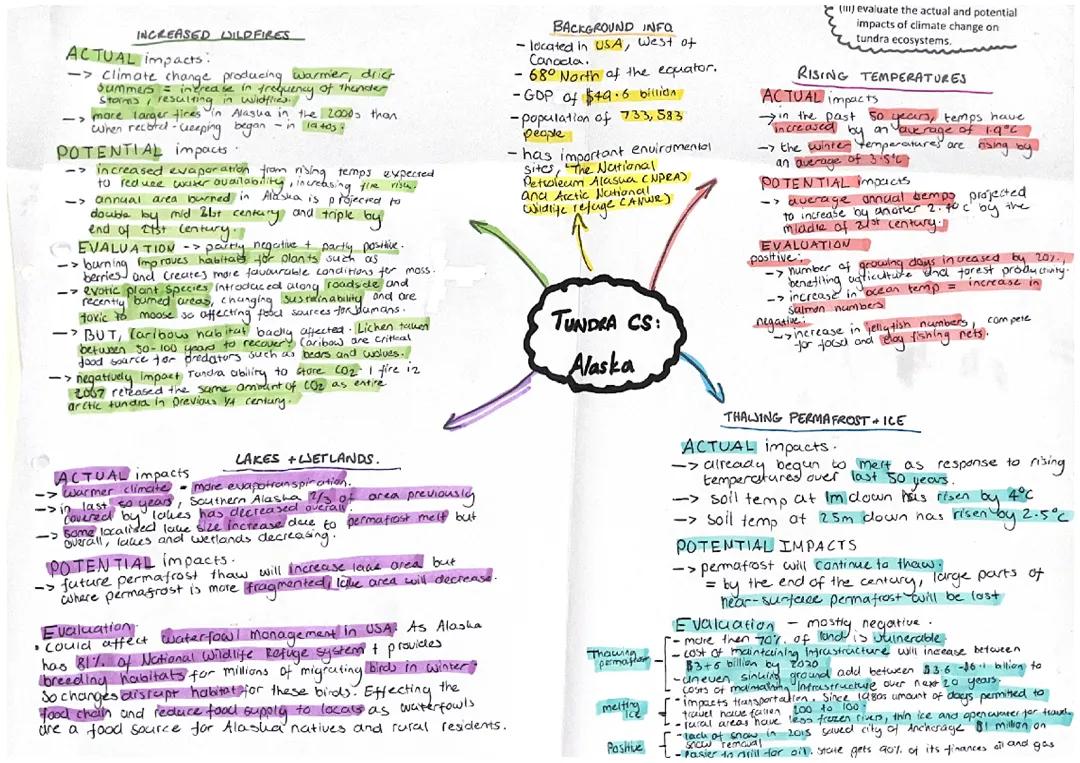 (iii) evaluate the actual and potential
impacts of climate change on
tundra ecosystems.
INCREASED WILDFIRES
ACTUAL impacts:
-> Climate change producing warmer, drier
summers = increase in frequency of thunder
storms, resulting in wildfires.
-> more larger fires in Alaska in the 2000s than
when record-keeping began - in 1940s.
POTENTIAL impacts.
-> increased evaporation from rising temps expected
to reduce water availability, increasing fire risk.
-> annual area burned in Alaska is projected to
double by mid 21st century and triple by
end of 21st century.
EVALUATION --> partly negative + partly positive.
-> burning improves habitats for plants such as
berries and creates more favourable conditions for moss.
-> exotic plant species introduced along roadside and
recently burned areas, changing sustainability and are
toxic to moose so affecting food sources for humans.
-> BUT, caribou habitat badly affected. Lichen taken
between 50-100 years to recover (caribou are critical
food source for predators such as bears and wolves.
-> negatively impact Tundra ability to store CO2. 1 fire in
2007 released the same amount of CO2 as entire
arctic tundra in previous 1/4 century.
BACKGROUND INFO
- located in USA, West of
Canada.
- 68° North of the equator.
- GDP of $49.6 billion
- population of 733,583
people
- has important enviromental
sites, The National
Petroleum Alaska (NPRA)
and Arctic National
Wildlife refuge (ANWR)
RISING TEMPERATURES
ACTUAL impacts
-> in the past 50 years, temps have
increased by an average of 1.9°C
-> the winter temperatures are rising by
an average of 3.5°C
POTENTIAL impacts
-> average annual temps projected
to increase by another 2. °C by the
middle of 21st century.
EVALUATION
positive:
-> number of growing days increased by 20%,
benefiting agriculture and forest productivity.
-> increase in ocean temp = increase in
salmon numbers
negative:
-> increase in jellyfish numbers, compete
for food and clog fishing nets.
TUNDRA CS:
Alaska
LAKES + WETLANDS.
ACTUAL impacts
-> warmer climate = more evapotranspiration.
-> in last 50 years, Southern Alaska 2/3 of area previously
covered by lakes has decreased overall.
-> some localised lake size increase due to permafrost melt but
overall, lakes and wetlands decreasing.
POTENTIAL impacts.
-> future permafrost thaw will increase lake area but
where permafrost is more fragmented, lake area will decrease.
Evaluation.
· Could affect waterfowl management in USA. As Alaska
has 81% of National Wildlife Refuge system + provides
breeding habitats for millions of migrating birds in winter
so changes disrupt habitat for these birds. Effecting the
food chain and reduce food supply to locals as waterfowls
are a food source for Alaska natives and rural residents.
THAWING PERMAFROST + ICE
ACTUAL impacts.
-> already begun to melt as response to rising
temperatures over last 50 years.
-> soil temp at 1m down has risen by 4°C
-> soil temp at 25m down has risen by 2.5°C
POTENTIAL IMPACTS
-> permafrost will continue to thaw.
= by the end of the century, large parts of
near-surface permafrost will be lost
Evaluation - mostly negative.
Thawing permafrost
- more then 70% of land is vulnerable
- cost of maintaining infrastructure will increase between
$3+6 billion by 2020
- uneven sinking ground add between $3.6 -$6.1 billion to
costs of maintaining infrastructure over next 20 years.
melting ice
- impacts transportation. Since 1980s amount of days permitted to
travel have fallen 200 to 100.
- rural areas have less frozen rivers, thin ice and open water for travel.
Positive
- lack of snow in 2015 saved city of Anchorage $1 million on
snow removal
- easier to drill for oil. State gets 90% of its finances oil and gas